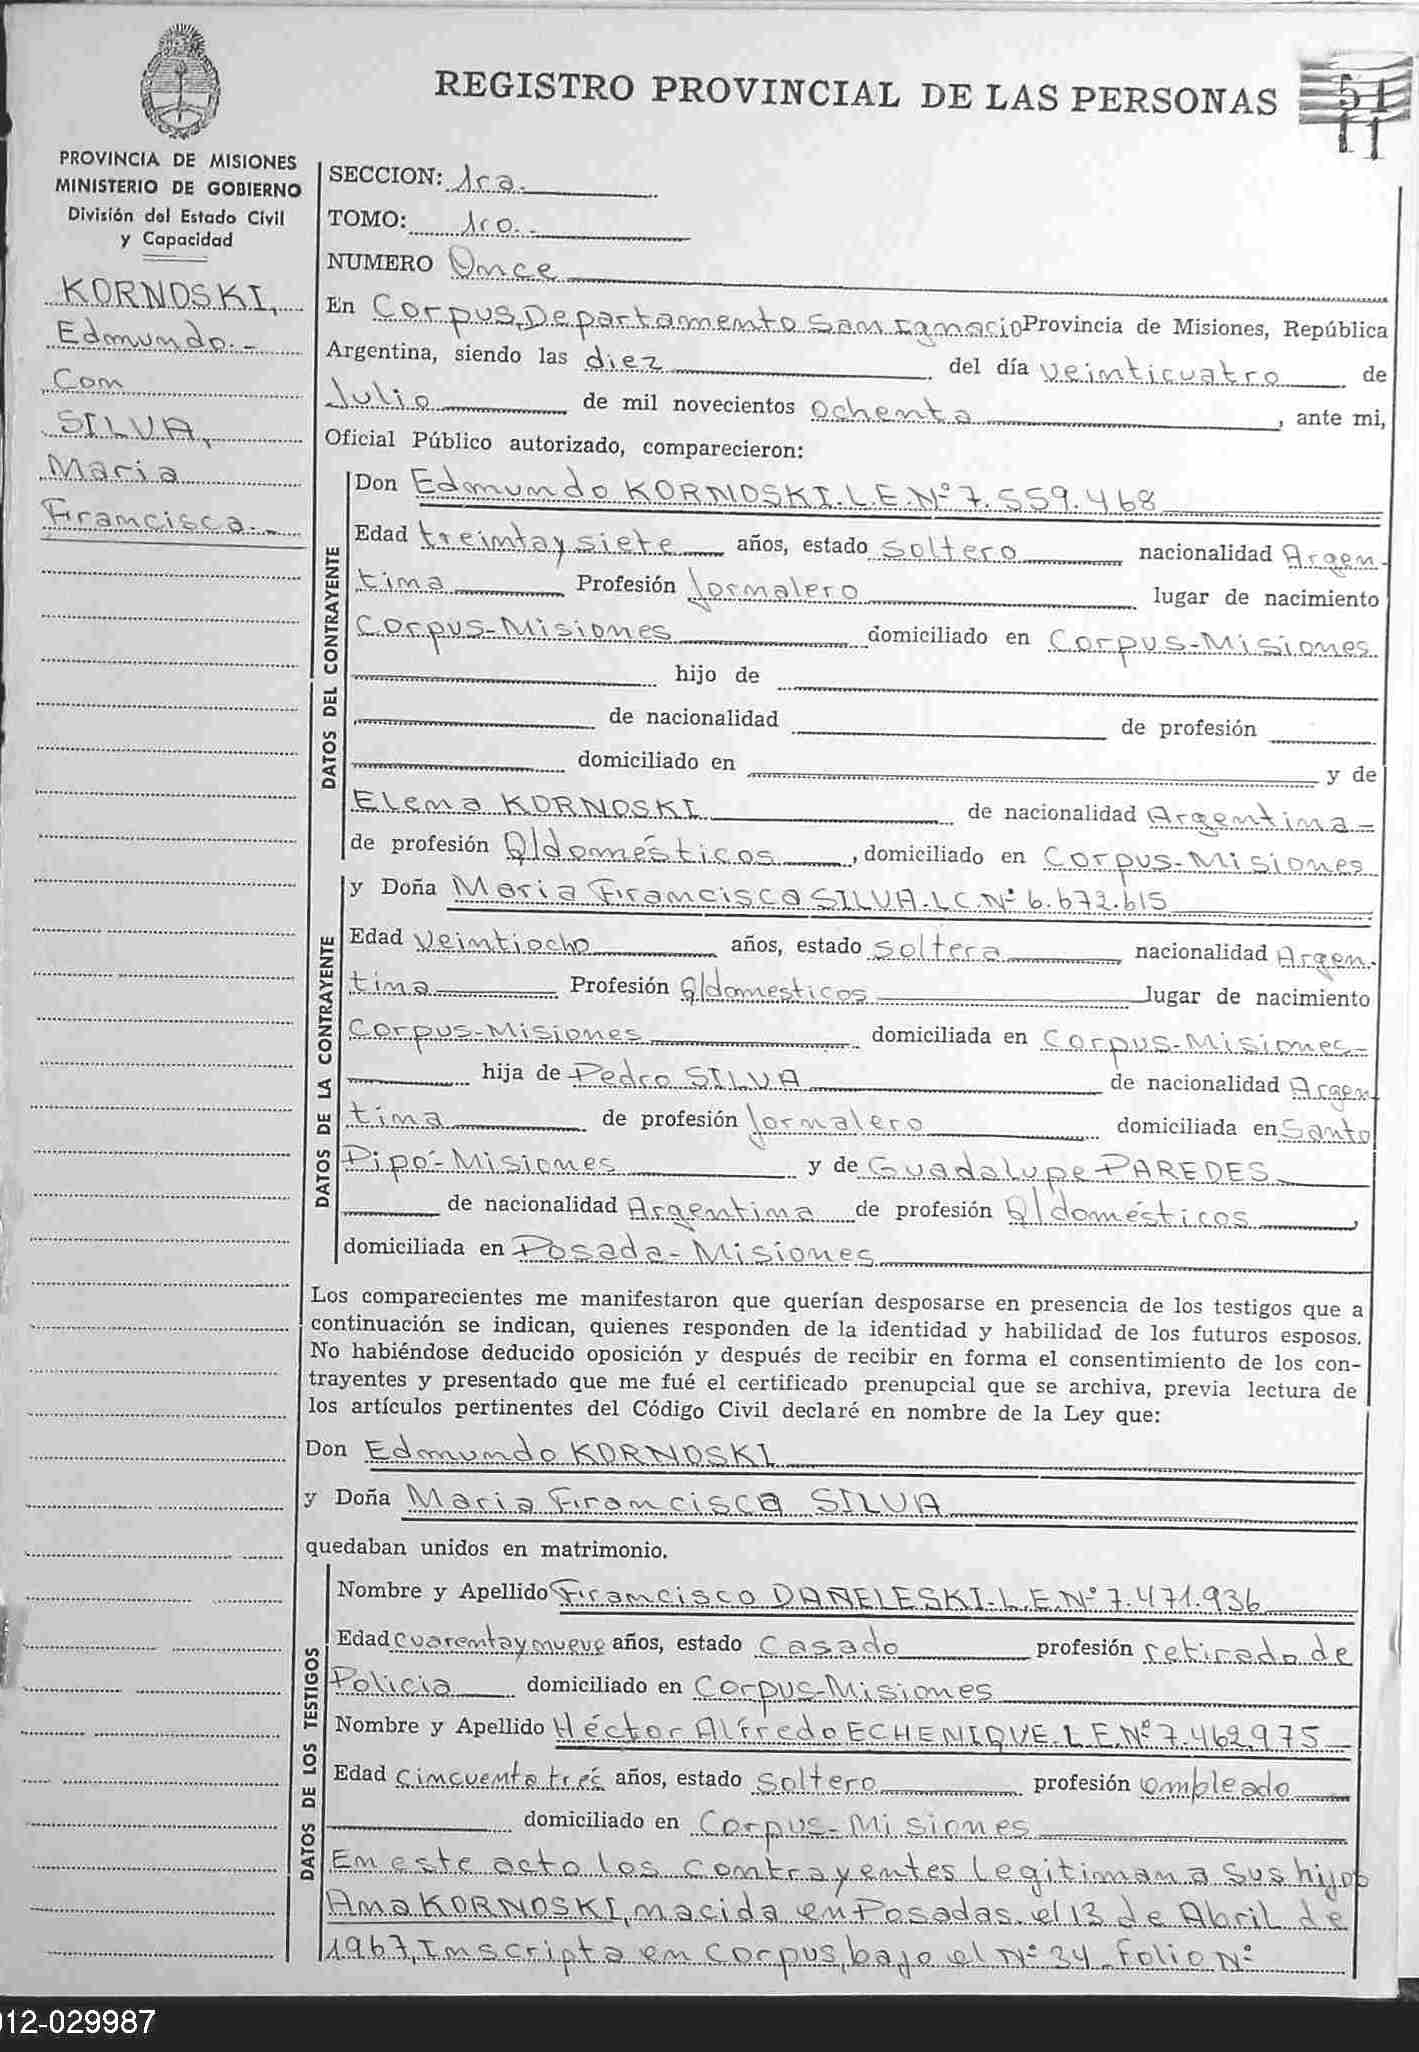 REGISTRO PROVINCIAL DE LAS PERSONAS
51
11
PROVINCIA DE MISIONES
MINISTERIO DE GOBIERNO
División del Estado Civil
y Capacidad
KORNOSKI,
Edmundo.-
Con
SILVA,
Maria
Francisca.-
SECCION: 1ra.
TOMO: 1ro.
NUMERO Once
En Corpus, Departamento San Ignacio Provincia de Misiones, República
Argentina, siendo las diez del día veinticuatro de
Julio de mil novecientos ochenta, ante mi,
Oficial Público autorizado, comparecieron:
DATOS DEL CONTRAYENTE
Don Edmundo KORNOSKI. L.E.Nº 7.559.468
Edad treinta y siete años, estado soltero nacionalidad Argen-
tina Profesión Jornalero lugar de nacimiento
Corpus-Misiones domiciliado en Corpus-Misiones
hijo de
de nacionalidad de profesión
domiciliado en y de
Elena KORNOSKI de nacionalidad Argentina-
de profesión Q/domésticos, domiciliado en Corpus-Misiones
DATOS DE LA CONTRAYENTE
y Doña Maria Francisca SILVA. L.C.Nº 6.672.615
Edad veintiocho años, estado soltera nacionalidad Argen-
tina Profesión Q/domesticos lugar de nacimiento
Corpus-Misiones domiciliada en Corpus-Misiones-
hija de Pedro SILVA de nacionalidad Argen
tina de profesión Jornalero domiciliada en Santo
Pipó-Misiones y de Guadalupe PAREDES
de nacionalidad Argentina de profesión Q/domésticos,
domiciliada en Posada-Misiones
Los comparecientes me manifestaron que querían desposarse en presencia de los testigos que a
continuación se indican, quienes responden de la identidad y habilidad de los futuros esposos.
No habiéndose deducido oposición y después de recibir en forma el consentimiento de los con-
trayentes y presentado que me fué el certificado prenupcial que se archiva, previa lectura de
los artículos pertinentes del Código Civil declaré en nombre de la Ley que:
Don Edmundo KORNOSKI
y Doña Maria Francisca SILVA
quedaban unidos en matrimonio.
DATOS DE LOS TESTIGOS
Nombre y Apellido Francisco DAÑELESKI. L.E.Nº 7.471.936
Edad cuarenta y nueve años, estado Casado profesión retirado de
Policia domiciliado en Corpus-Misiones
Nombre y Apellido Héctor Alfredo ECHENIQUE. L.E.Nº 7.462.975
Edad cincuenta tres años, estado soltero profesión empleado
domiciliado en Corpus-Misiones
En este acto los contrayentes legitiman a sus hijos
Ana KORNOSKI, nacida en Posadas, el 13 de Abril de
1967, Inscripta en Corpus, bajo el Nº 34 Folio Nº
012-029987